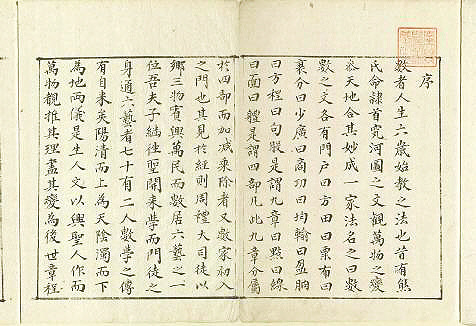 序
數者人生六歲始教之法也昔有熊
氏命隸首究河圖之文觀萬物之變
叅天地合其妙成一家法名之曰數
數之文各有門戶曰方田曰粟布曰
衰分曰少廣曰商功曰均輸曰盈朒
曰方程曰句股是謂九章曰點曰線
曰面曰體是謂四部凡此九章分屬
於四部而加减乘除者又數家初入
之門也其見於經則周禮大司徒以
鄉三物賓興萬民而數居六藝之一
位吾夫子繼徃聖開來學而門徒之
身通六藝者七十有二人數學之傳
有自來矣陽清而上為天陰濁而下
為地兩儀是生人文以興聖人作而
萬物覩推其理盡其變為後世章程